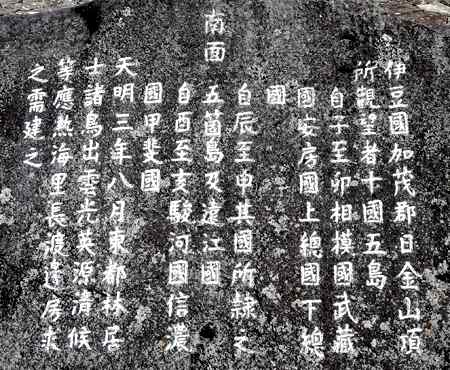 伊豆國加茂郡日金山頂
所觀望者十國五島
自子至卯相摸國武藏
國安房國上總國下總
國
南面
自辰至申其國所隷之
五箇島及遠江國
自酉至亥駿河國信濃
國甲斐國
天明三年八月東都林居
士諸鳥出雲光英源清候
等應熱海里長渡邊房求
之需建之